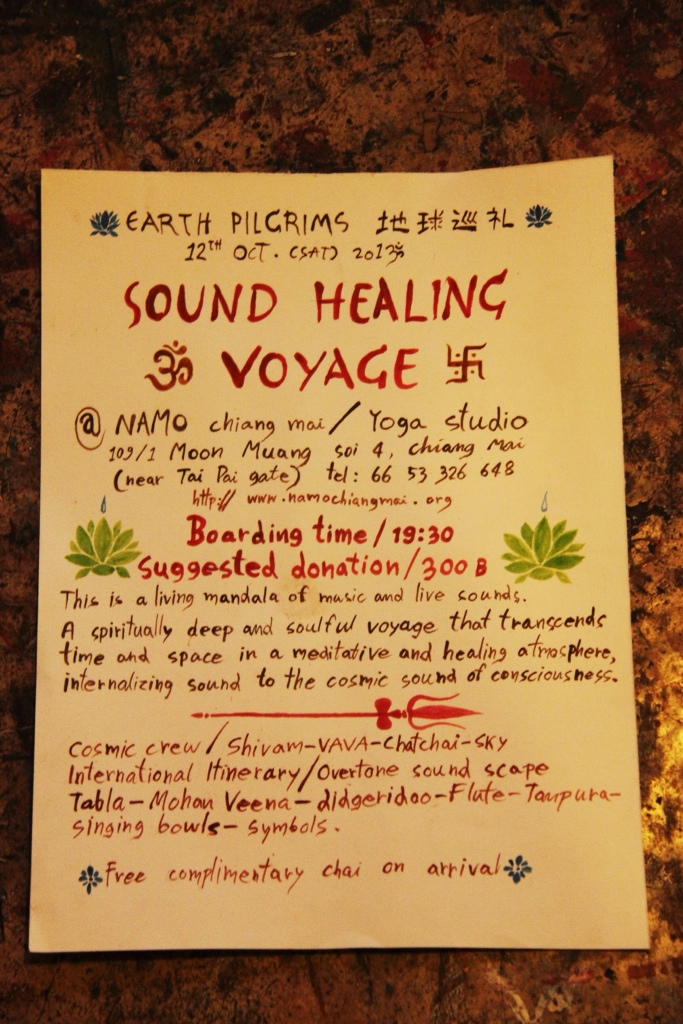 EARTH PILGRIMS 地球巡礼
12TH OCT. (SAT) 2013 ॐ
SOUND HEALING
ॐ VOYAGE 卐
@ NAMO chiang mai / Yoga studio
109/1 Moon Muang soi 4, chiang Mai
(near Tai Pai gate) tel: 66 53 326 648
http:// www.namochiangmai.org
Boarding time / 19:30
Suggested donation / 300 B
This is a living mandala of music and live sounds.
A spiritually deep and soulful voyage that transcends
time and space in a meditative and healing atmosphere,
internalizing sound to the cosmic sound of consciousness.
Cosmic crew / Shivam-VAVA-Chatchai-SKY
International Itinerary / Overtone sound scape
Tabla - Mohan Veena - didgeridoo - Flute - Tanpura -
singing bowls - symbols.
Free complimentary chai on arrival